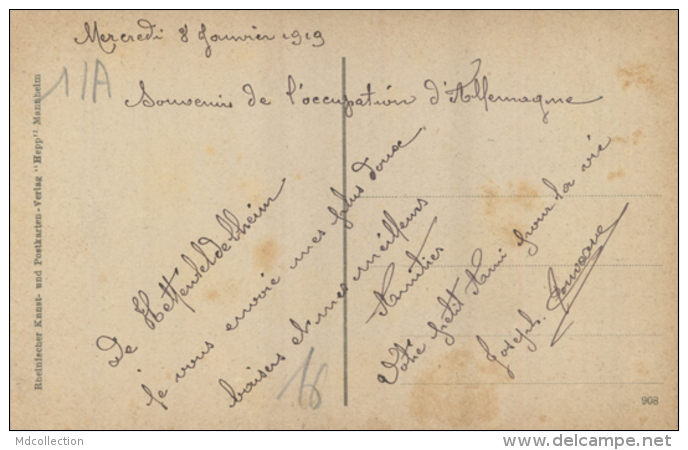 Mercredi 8 Janvier 1919
11A
Souvenir de l'occupation d'Allemagne
De Hettenleidelheim
je vous envoie mes plus doux
baisers et mes meilleurs
Amitiés
Votre petit Ami pour la vie
Joseph
18
Rheinischer Kunst- und Postkarten-Verlag "Hepp" Mannheim
908
Mdcollection
www.delcampe.net